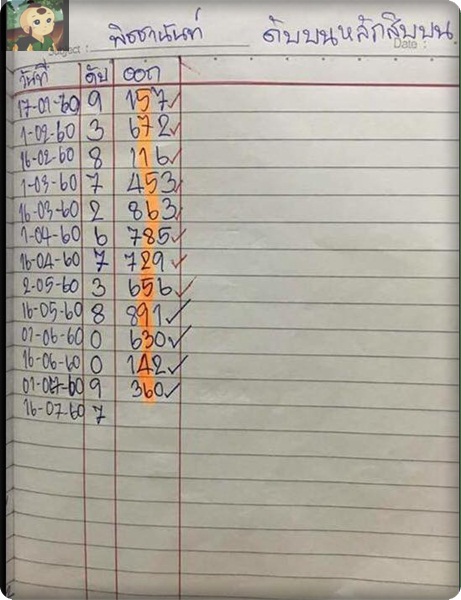 พิชชานันท์ ดับบนหลักสิบบน
Subject : Date :
วันที่ ดับ ออก
17-01-60 9 157✓
1-02-60 3 672✓
16-02-60 8 116✓
1-03-60 7 453✓
16-03-60 2 863✓
1-04-60 6 785✓
16-04-60 7 729✓
2-05-60 3 656✓
16-05-60 8 891✓
01-06-60 0 630✓
16-06-60 0 142✓
01-07-60 9 360✓
16-07-60 7